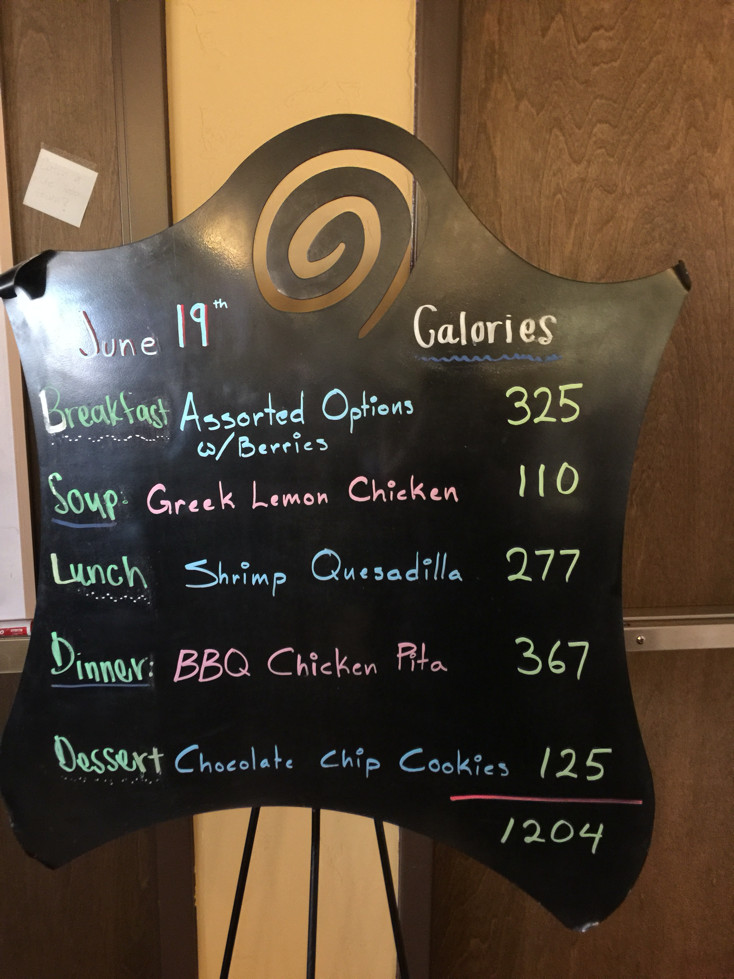 June 19th Calories
Breakfast Assorted Options 325
w/Berries
Soup: Greek Lemon Chicken 110
Lunch Shrimp Quesadilla 277
Dinner: BBQ Chicken Pita 367
Dessert Chocolate Chip Cookies 125
1204